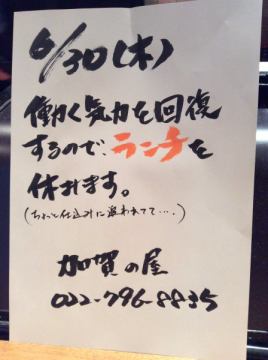 6/30(木)
働く気力を回復
するので、ランチを
休みます。
(ちょっと仕込みに追われてて・・・。)
加賀の屋
022-796-8835